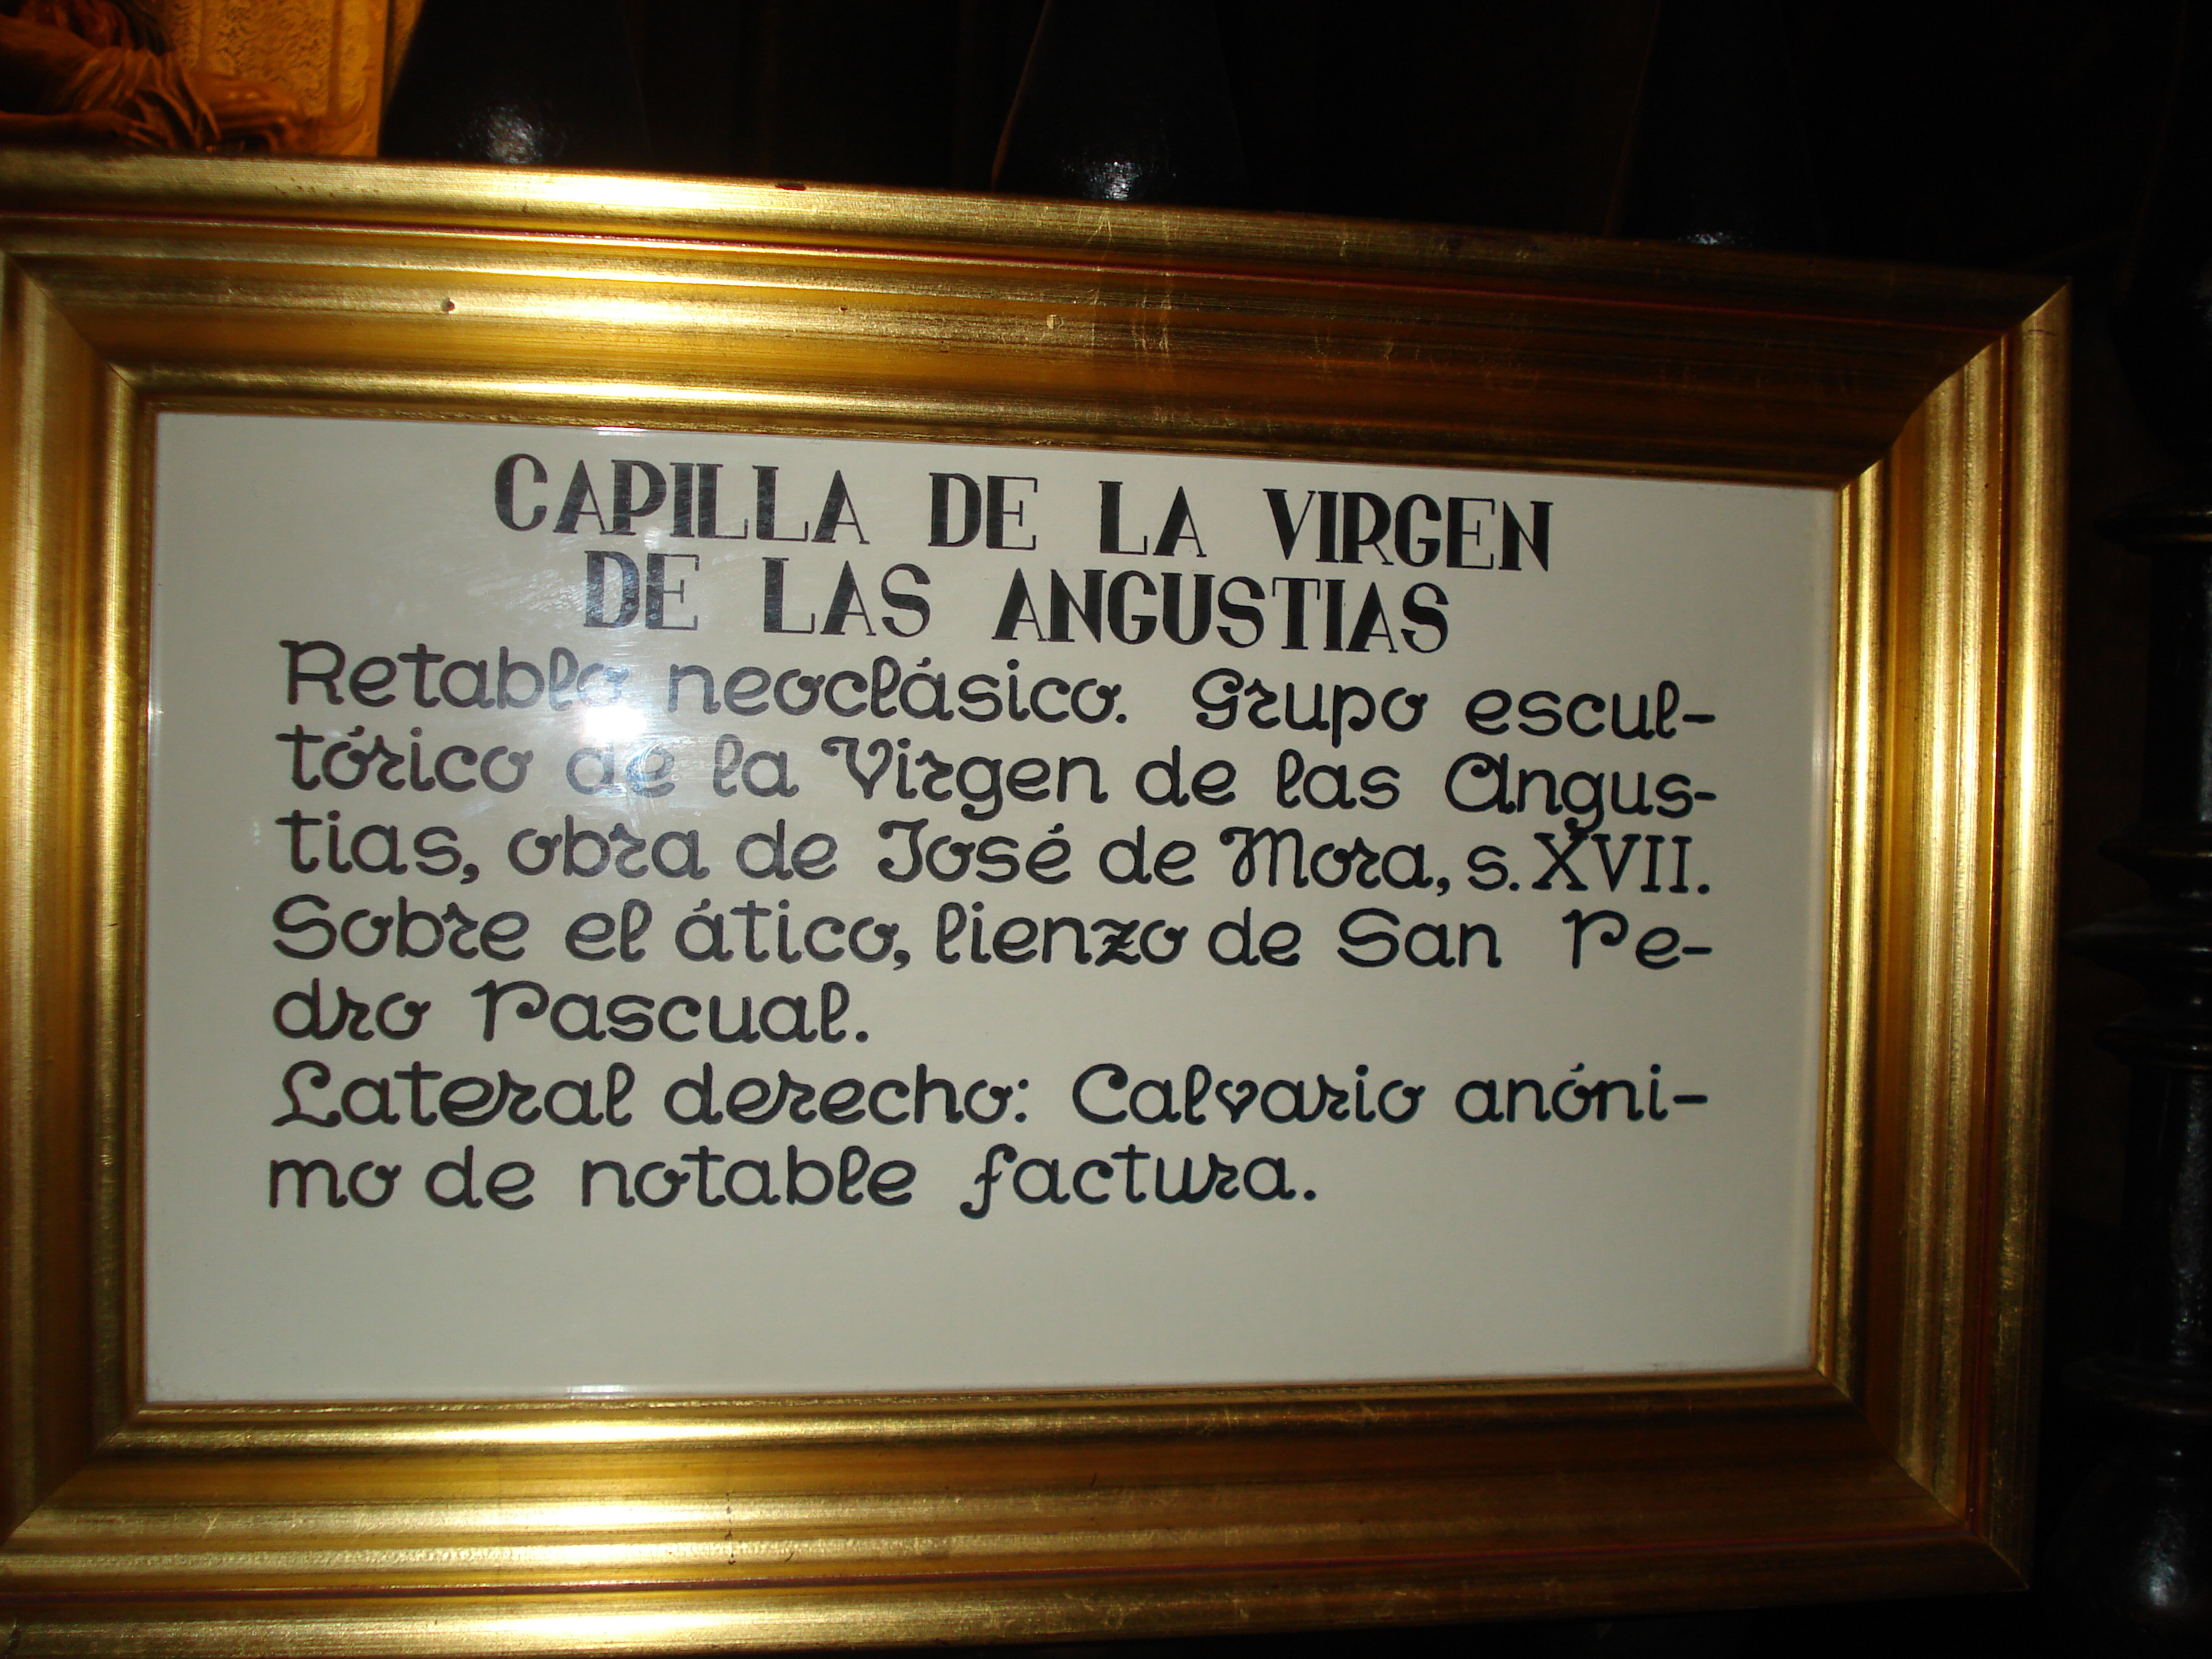 CAPILLA DE LA VIRGEN
DE LAS ANGUSTIAS
Retablo neoclásico. Grupo escul-
tórico de la Virgen de las Angus-
tias, obra de José de Mora, s. XVII.
Sobre el ático, lienzo de San Pe-
dro Pascual.
Lateral derecho: Calvario anóni-
mo de notable factura.